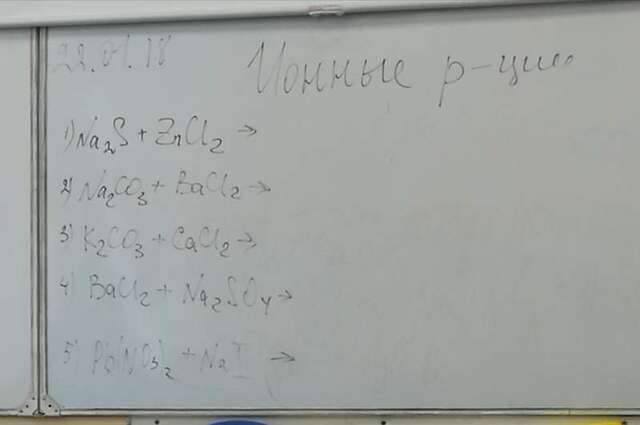 22.01.18
Ионные р-ции
1) Na₂S + ZnCl₂ →
2) Na₂CO₃ + BaCl₂ →
3) K₂CO₃ + CaCl₂ →
4) BaCl₂ + Na₂SO₄ →
5) Pb(NO₃)₂ + NaI →